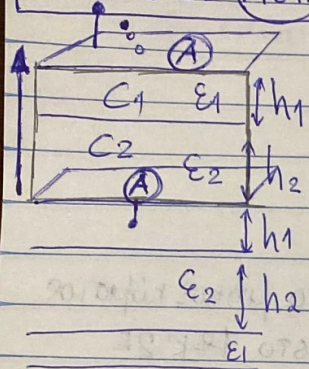 A
C1 ε1 h1
C2 ε2 h2
A
h1
ε2 h2
ε1